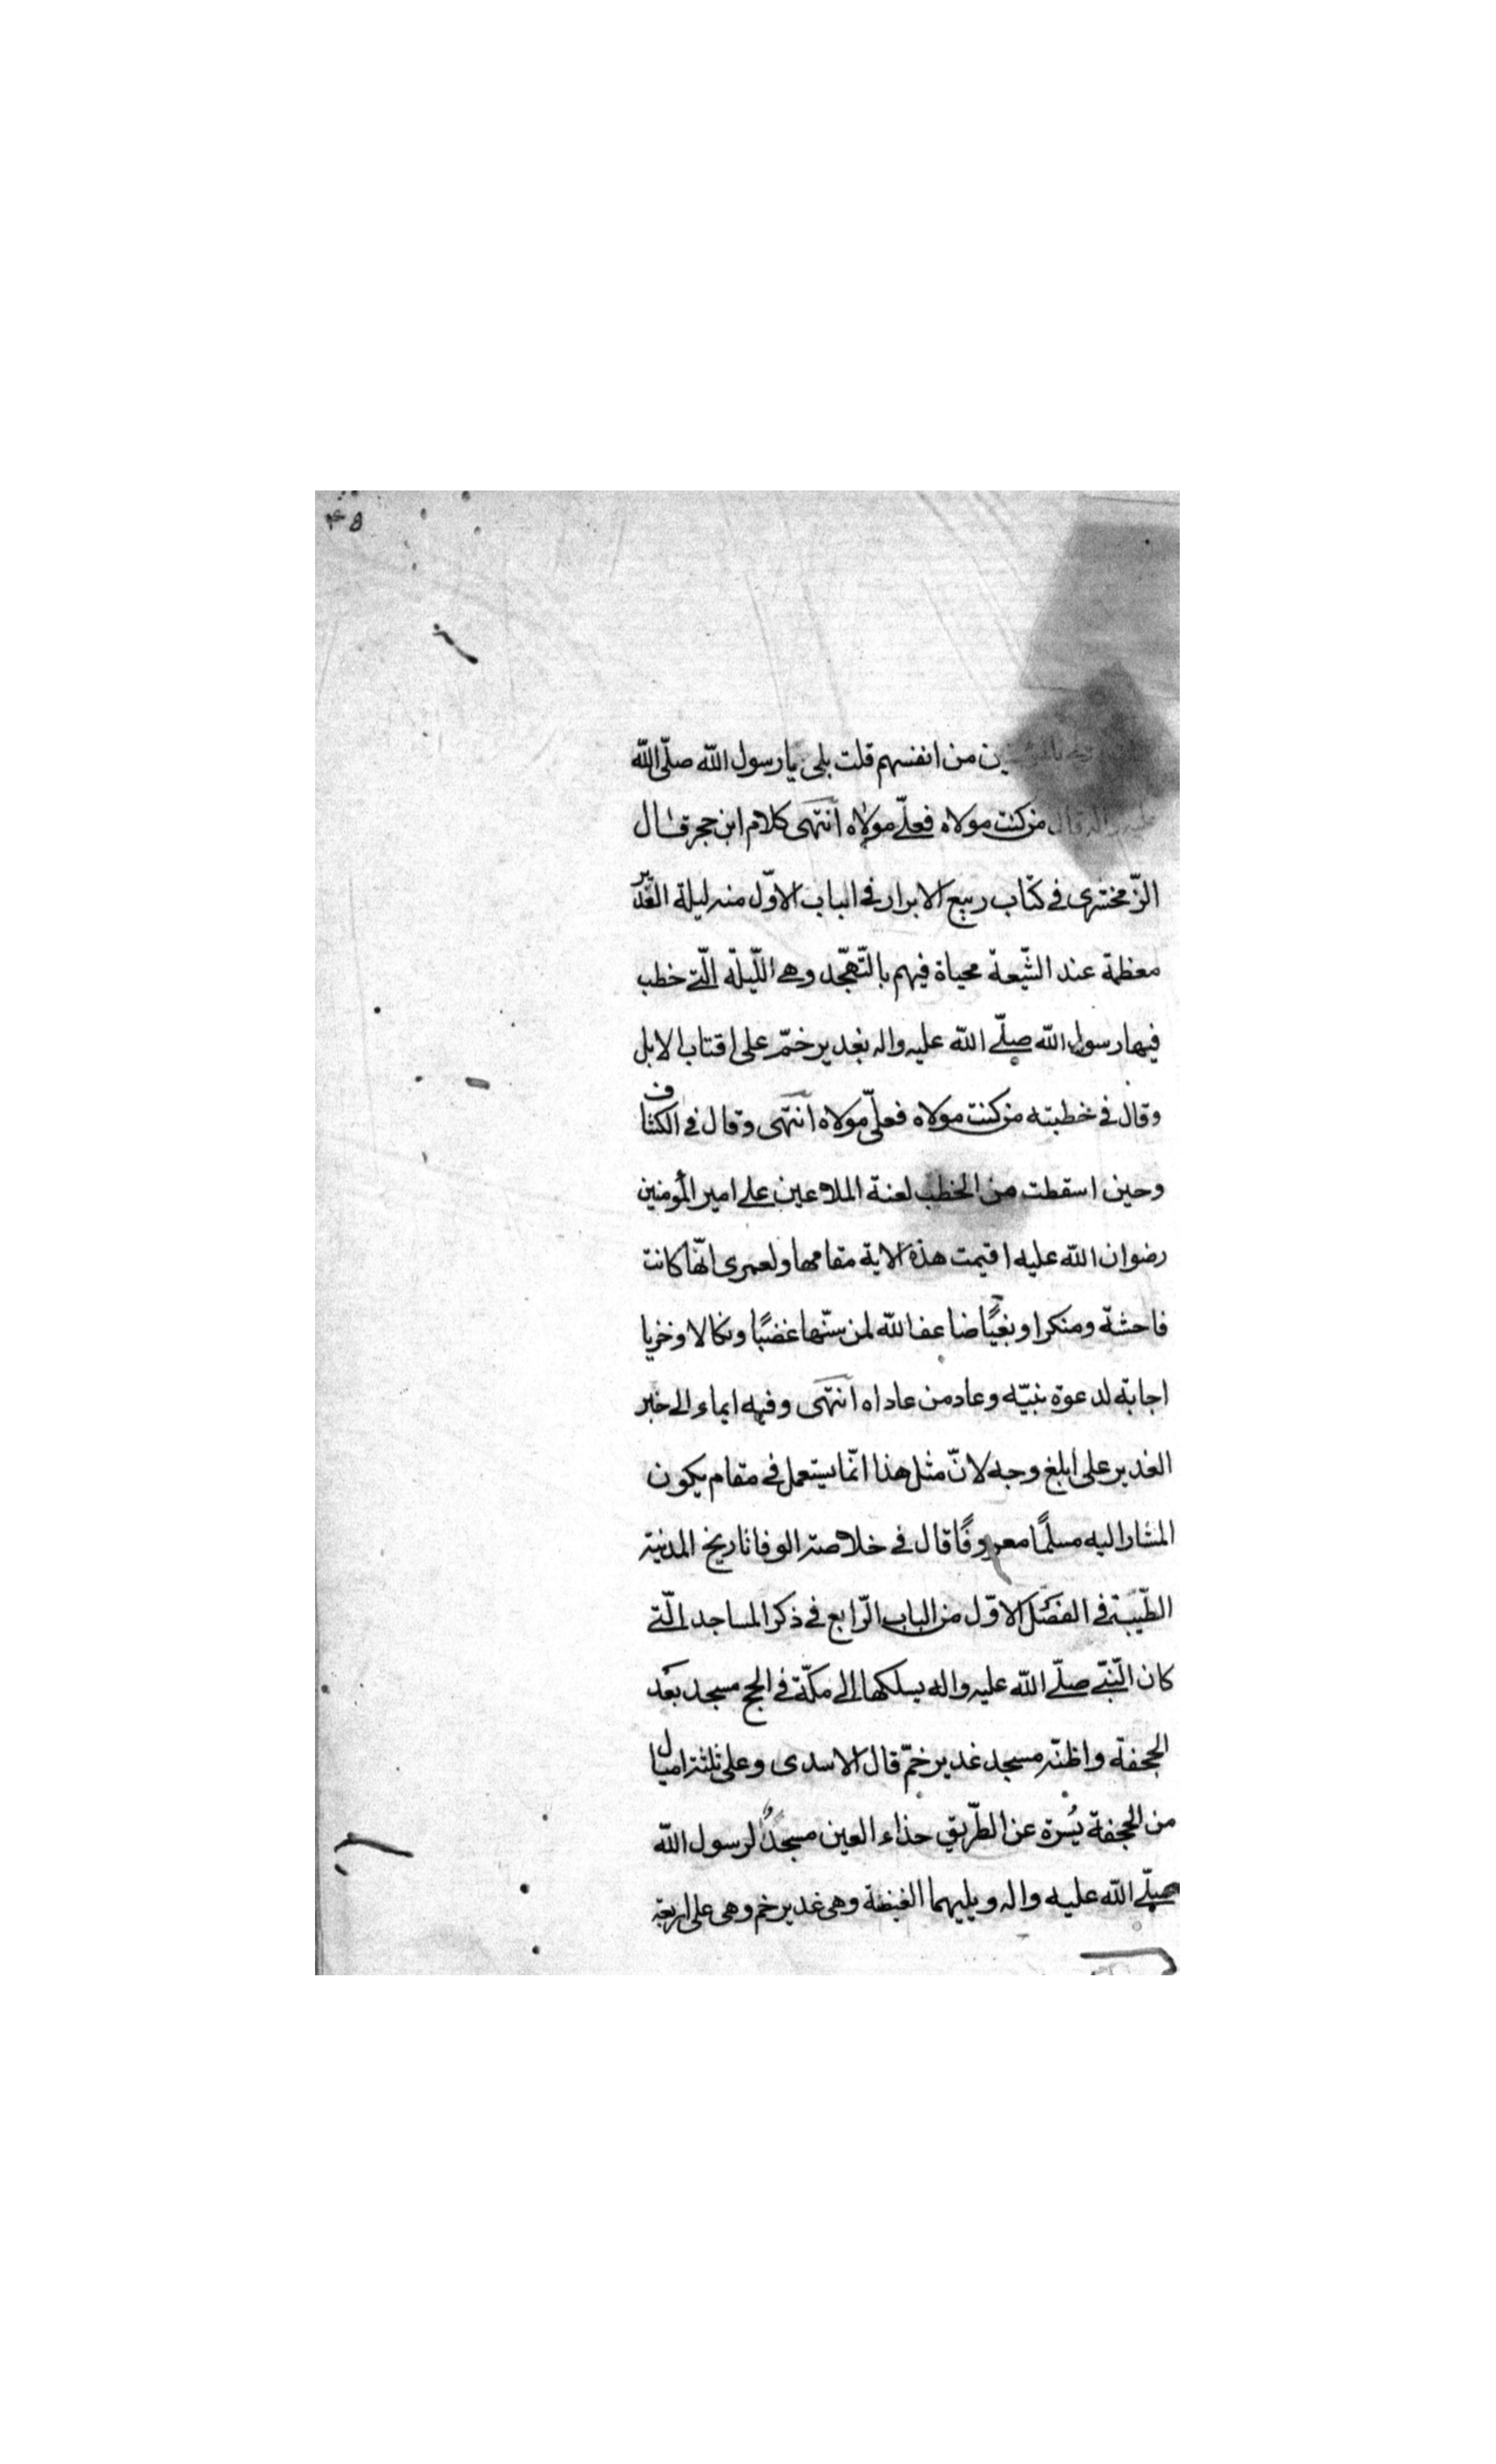 ۴۵
بالمؤمنين من انفسهم قلت بلى يا رسول الله صلّى الله
عليه واله قال من كنت مولاه فعلىّ مولاه انتهى كلام ابن حجر قال
الزّمخشرى فى كتاب ربيع الابرار فى الباب الاوّل منه ليلة الغدير
معظمة عند الشّيعة محياة فيهم بالتّهجّد وهى اللّيلة الّتى خطب
فيها رسول الله صلّى الله عليه واله بغدير خمّ على اقتاب الابل
وقال فى خطبته من كنت مولاه فعلىّ مولاه انتهى وقال فى الكشاف
وحين اسقطت من الخطب لعنة الملاعين على امير المؤمنين
رضوان الله عليه اقيمت هذه الاية مقامها ولعمرى انّها كانت
فاحشة ومنكرا وبغيًا ضاعف الله لمن سنّها غضبًا ونكالا وخزيا
اجابة لدعوة نبيّه وعاد من عاداه انتهى وفيه ايماء الى خبر
الغدير على ابلغ وجه لانّ مثل هذا انّما يستعمل فى مقام يكون
المشار اليه مسلمًا معروفًا قال فى خلاصة الوفا تاريخ المدينة
الطّيبة فى الفصل الاوّل من الباب الرّابع فى ذكر المساجد الّتى
كان النّبىّ صلّى الله عليه واله يسلكها الى مكّة فى الحج مسجد بعد
الجحفة واظنّه مسجد غدير خمّ قال الاسدى وعلى ثلثة اميال
من الجحفة يسرة عن الطّريق حذاء العين مسجدٌ لرسول الله
صلّى الله عليه واله ويليهما الغيضة وهى غدير خم وهى على اربعة